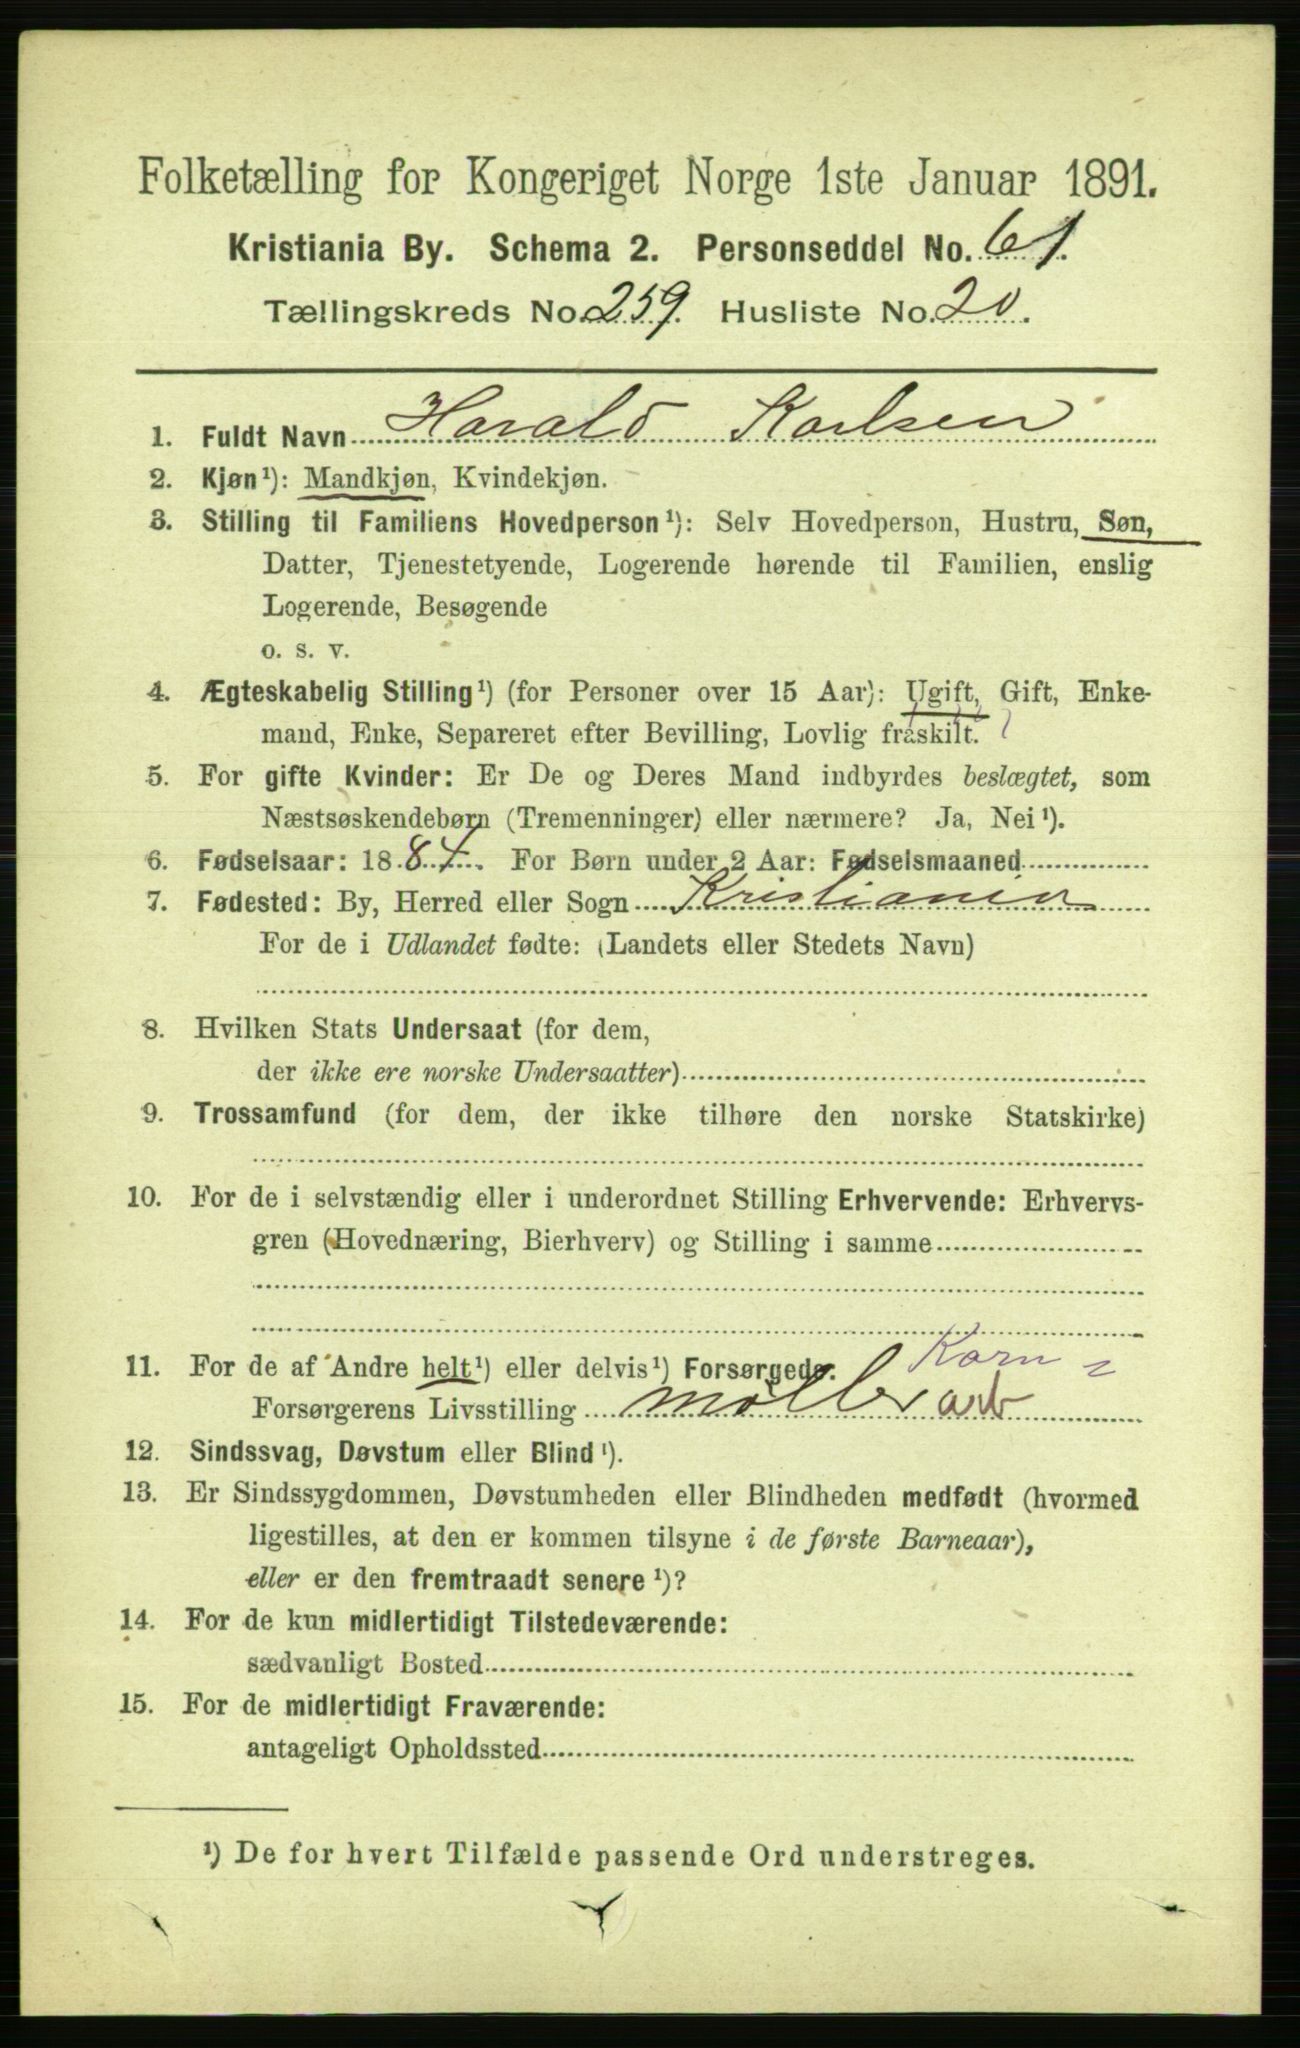 Folketælling for Kongeriget Norge 1ste Januar 1891.
Kristiania By. Schema 2. Personseddel No. 61.
Tællingskreds No. 259. Husliste No. 20.
1. Fuldt Navn Harald Karlsen
2. Kjøn¹): Mandkjøn, Kvindekjøn.
3. Stilling til Familiens Hovedperson¹): Selv Hovedperson, Hustru, Søn,
Datter, Tjenestetyende, Logerende hørende til Familien, enslig
Logerende, Besøgende
o. s. v.
4. Ægteskabelig Stilling¹) (for Personer over 15 Aar): Ugift, Gift, Enke-
mand, Enke, Separeret efter Bevilling, Lovlig fraskilt.
5. For gifte Kvinder: Er De og Deres Mand indbyrdes beslægtet, som
Næstsøskendebørn (Tremenninger) eller nærmere? Ja, Nei¹).
6. Fødselsaar: 1884. For Børn under 2 Aar: Fødselsmaaned
7. Fødested: By, Herred eller Sogn Kristiania
For de i Udlandet fødte: (Landets eller Stedets Navn)
8. Hvilken Stats Undersaat (for dem,
der ikke ere norske Undersaatter)
9. Trossamfund (for dem, der ikke tilhøre den norske Statskirke)
10. For de i selvstændig eller i underordnet Stilling Erhvervende: Erhvervs-
gren (Hovednæring, Bierhverv) og Stilling i samme
11. For de af Andre helt¹) eller delvis¹) Forsørgede. Korn
Forsørgerens Livsstilling møller arb
12. Sindssvag, Døvstum eller Blind¹).
13. Er Sindssygdommen, Døvstumheden eller Blindheden medfødt (hvormed
ligestilles, at den er kommen tilsyne i de første Barneaar),
eller er den fremtraadt senere¹)?
14. For de kun midlertidigt Tilstedeværende:
sædvanligt Bosted
15. For de midlertidigt Fraværende:
antageligt Opholdssted
¹) De for hvert Tilfælde passende Ord understreges.